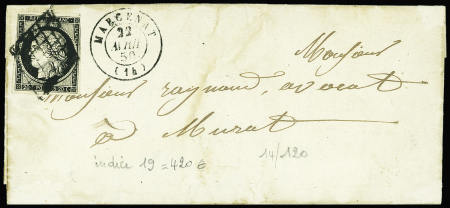 MARCENAT
22
AVRIL
50
(14)
Monsieur
Monsieur raynaud, avocat
à Murat
indice 19 = 420 €
14/120